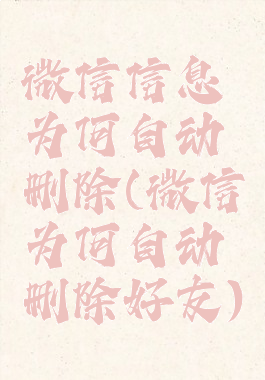 微信信息
为何自动
删除(微信
为何自动
删除好友)